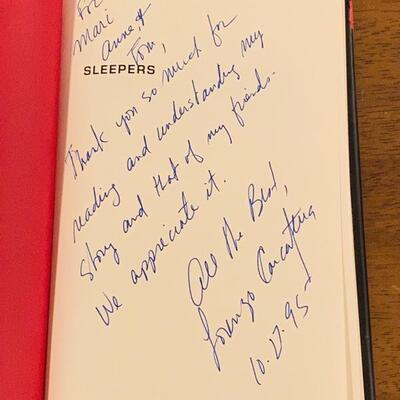 For
Mari
Anne &
Tom,
SLEEPERS
Thank you so much for
reading and understanding my
story and that of my friends.
We appreciate it.
All the Best,
Lorenzo Carcaterra
10.27.95